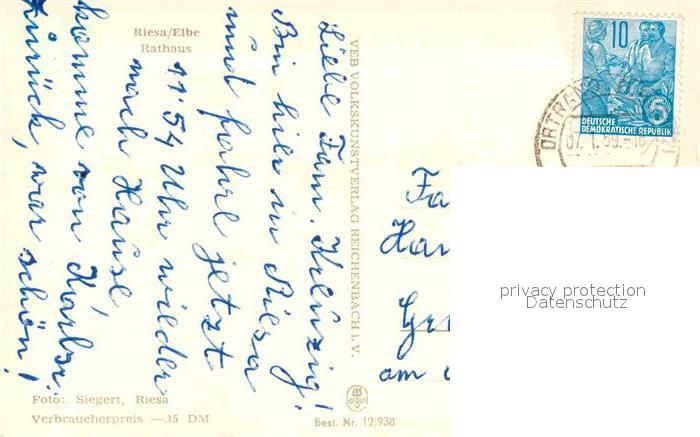 Riesa/Elbe
Rathaus
Liebe Fam. Kreuzig!
Bin hier in Riesa
und fahre jetzt
11.54 Uhr wieder
nach Hause
komme von Karlsr.
zurück, war schön!
Foto: Siegert, Riesa
Verbraucherpreis —.15 DM
VEB VOLKSKUNSTVERLAG REICHENBACH i. V.
Best. Nr. 12/938
10
DEUTSCHE
DEMOKRATISCHE REPUBLIK
ORTRAND
07. 1. 59.-16
Fa
Han
am
privacy protection
Datenschutz